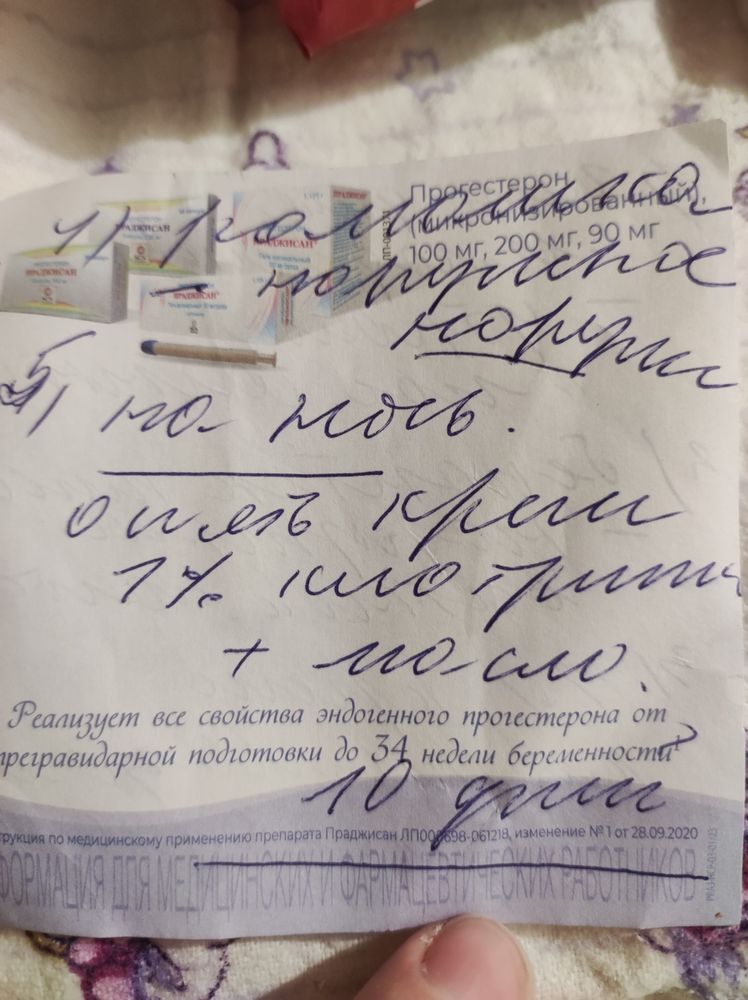 Прогестерон
(микронизированный),
100 мг, 200 мг, 90 мг
ПРАДЖИСАН
ПРАДЖИСАН
ПРАДЖИСАН
ПРАДЖИСАН
ромашка
наружное
на ночь.
опять крем
1% клотрим
+ масло.
Реализует все свойства эндогенного прогестерона от
прегравидарной подготовки до 34 недели беременности
10 дней
трукция по медицинскому применению препарата Праджисан ЛП000698-061218, изменение № 1 от 28.09.2020
ФОРМАЦИЯ ДЛЯ МЕДИЦИНСКИХ И ФАРМАЦЕВТИЧЕСКИХ РАБОТНИКОВ